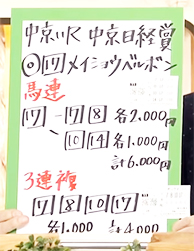 中京11R 中京日経賞
◎17 メイショウベルボン
馬連
17 - 7 8 各2,000円
- 10 14 各1,000円
計6,000円
3連複
7 8 10 17
各1,000 計4,000